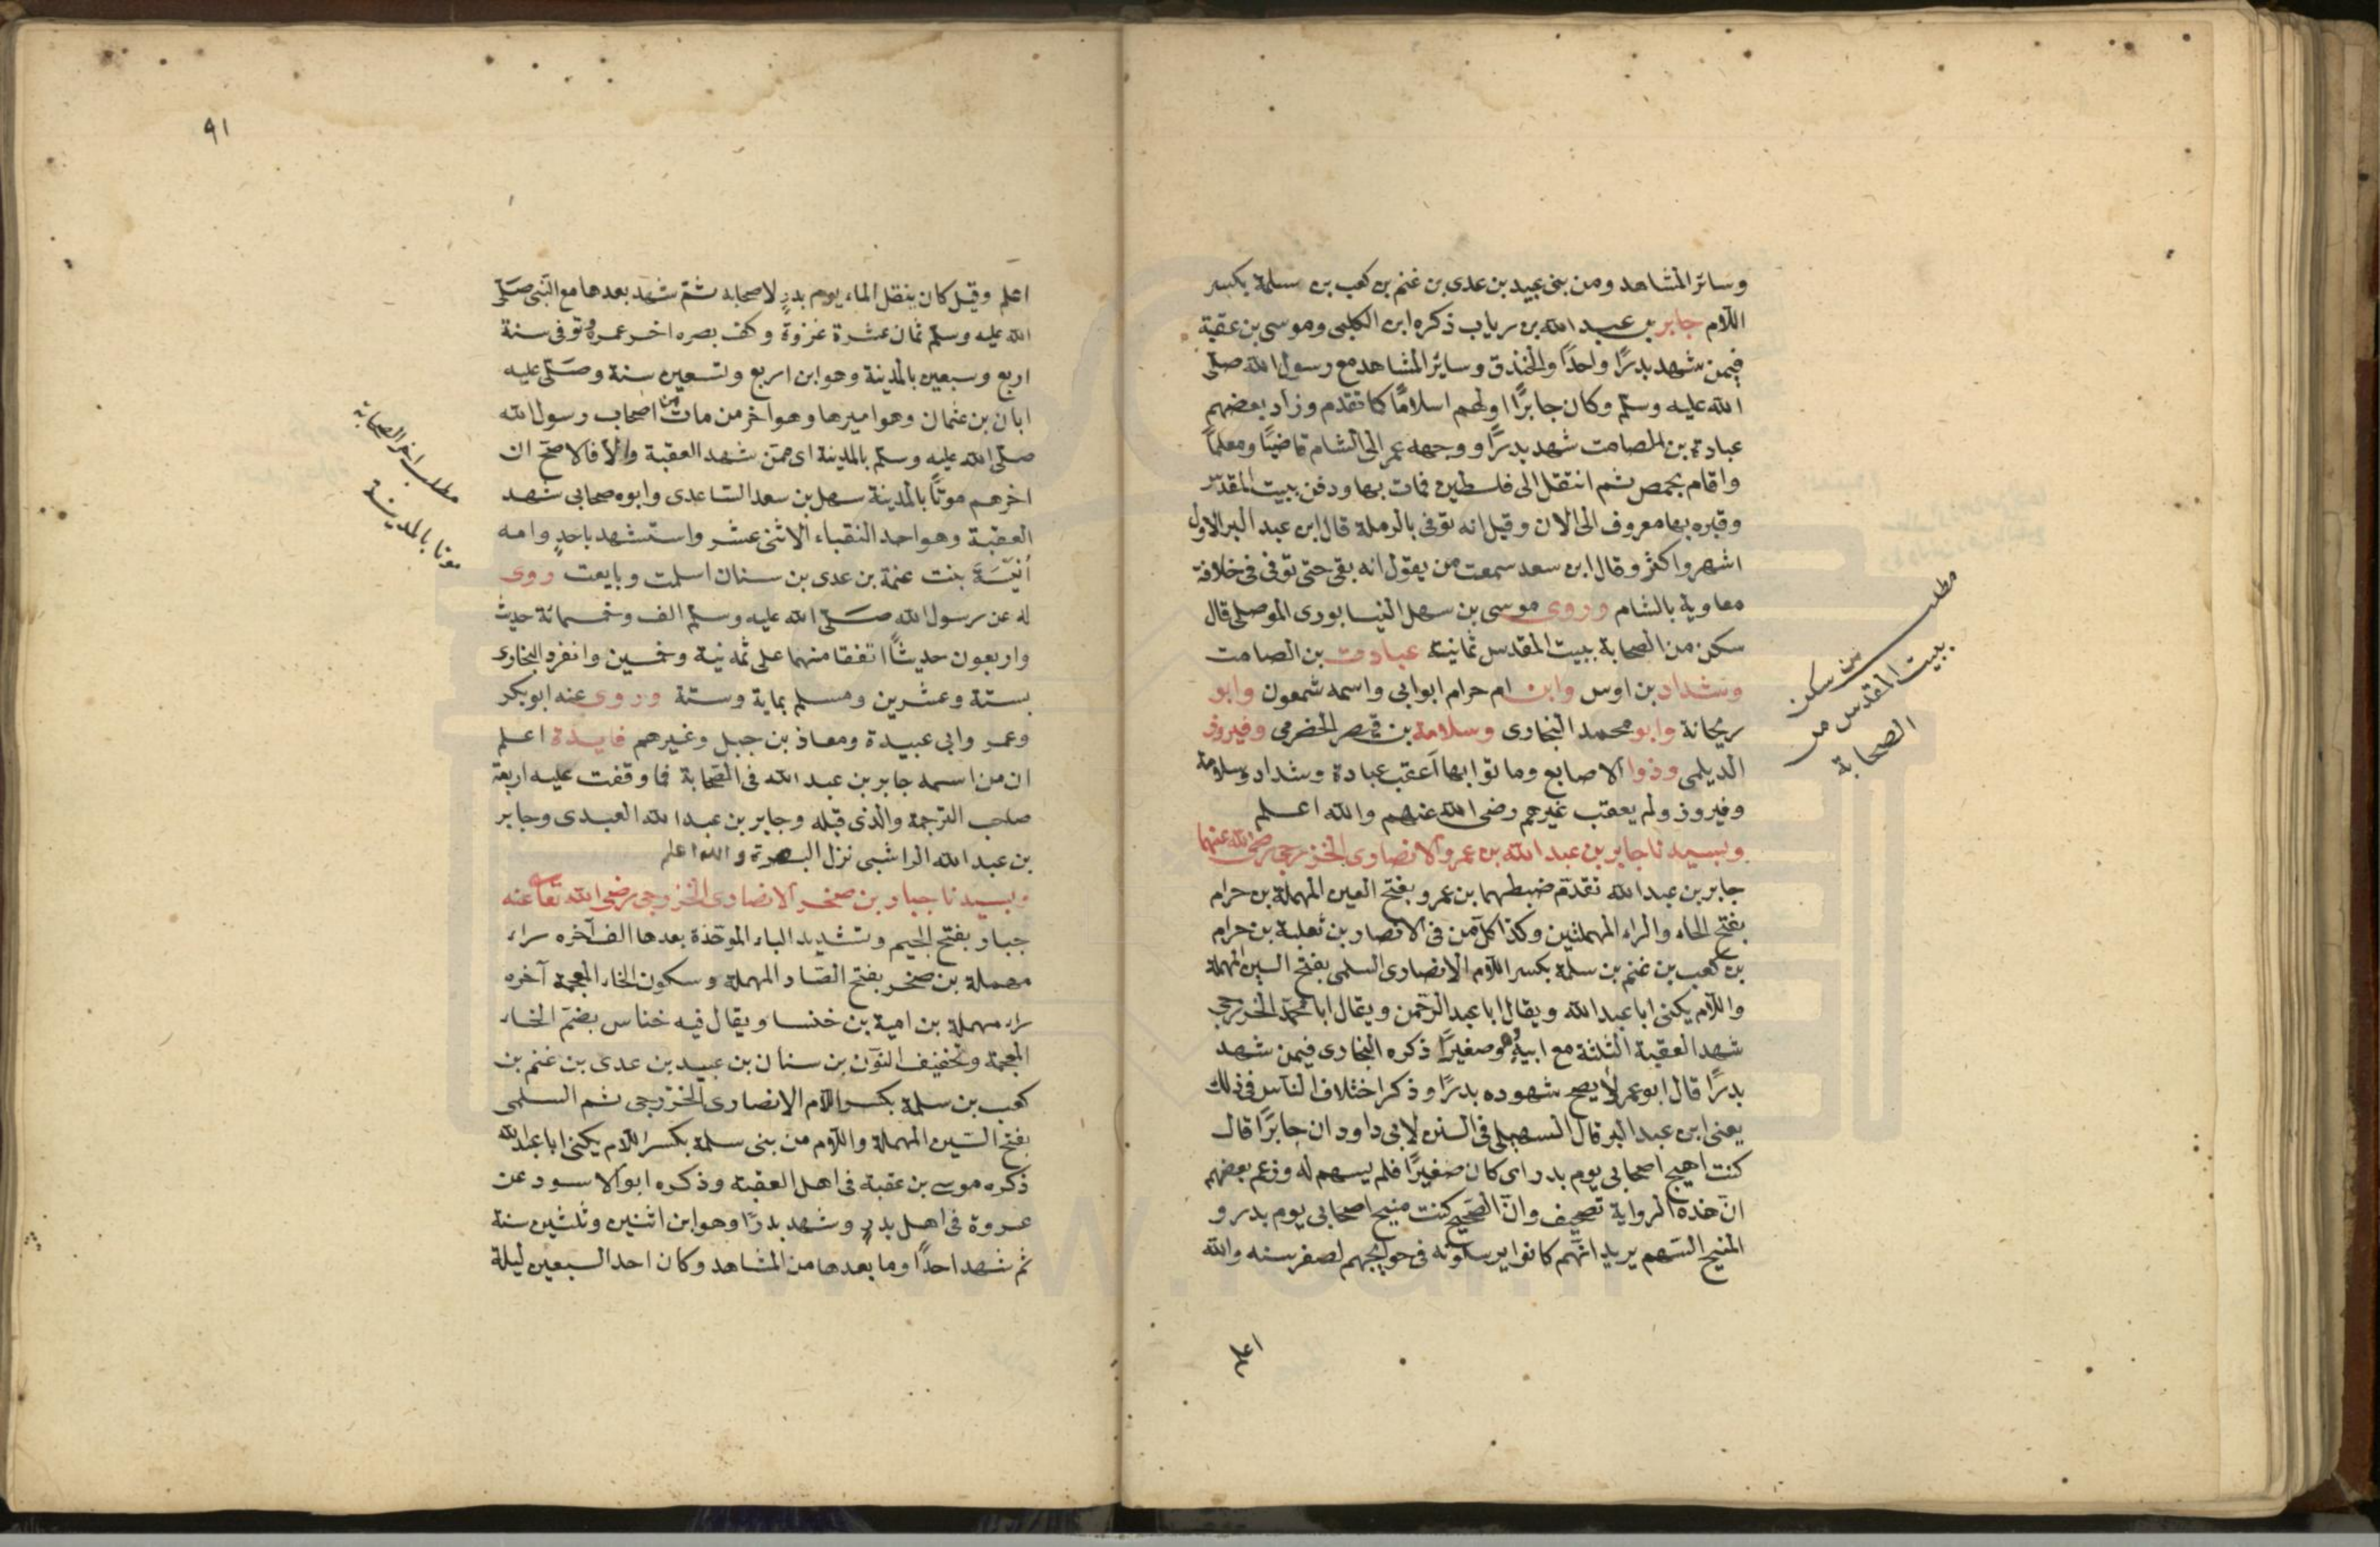 وسائر المشاهد ومن بنى عبيد بن عدى بن غنم بن كعب بن سلمة بكسر
اللام جابر بن عبد الله بن رياب ذكره ابن الكلبى وموسى بن عقبة
فيمن شهد بدرًا واحدًا والخندق وسائر المشاهد مع رسول الله صلى
الله عليه وسلم وكان جابرًا اولهم اسلامًا كما تقدم وزاد بعضهم
عبادة بن الصامت شهد بدرًا ووجهه عمر الى الشام قاضيًا ومعلمًا
واقام بحمص ثم انتقل الى فلسطين فمات بها ودفن ببيت المقدس
وقبره بها معروف الى الان وقيل انه توفى بالرملة قال ابن عبد البر الاول
اشهر واكثر وقال ابن سعد سمعت من يقول انه بقى حتى توفى فى خلافة
معاوية بالشام وروى موسى بن سهل النيسابورى الموصلى قال
سكن من الصحابة ببيت المقدس ثمانية عبادة بن الصامت
وشداد بن اوس وابن ام حرام ابو ابى واسمه شمعون وابو
ريحانة وابو محمد النجارى وسلامة بن قيصر الحضرمى وفيروز
الديلمى وذوا الاصابع وماتوا بها اعقب عبادة وشداد وسلامة
وفيروز ولم يعقب غيرهم رضى الله عنهم والله اعلم
وبسيدنا جابر بن عبد الله بن عمرو الانصارى الخزرجى رضى الله عنهما
جابر بن عبد الله تقدم ضبطهما بن عمرو بفتح العين المهملة بن حرام
بفتح الحاء والراء المهملتين وكذا كل من فى الانصار بن ثعلبة بن حرام
بن كعب بن غنم بن سلمة بكسر اللام الانصارى السلمى بفتح السين المهملة
واللام يكنى ابا عبد الله ويقال ابا عبد الرحمن ويقال ابا محمد الخزرجى
شهد العقبة الثلثة مع ابيه وهو صغيرًا ذكره البخارى فيمن شهد
بدرًا قال ابو عمر لا يصح شهوده بدرًا وذكر اختلاف الناس فى ذلك
يعنى ابن عبد البر قال السهيلى فى السنن لابى داود ان جابرًا قال
كنت اميح اصحابى يوم بدر اى كان صغيرًا فلم يسهم له وزعم بعضهم
ان هذه الرواية تصحيف وان الصحيح كنت منيح اصحابى يوم بدر و
المنيح السهم يريد انهم كانوا يرسلونه فى حوايجهم لصغر سنه والله
اعلم
مطلب
من سكن
ببيت المقدس من
الصحابة
٩١
اعلم وقيل كان ينقل الماء يوم بدرٍ لاصحابه ثم شهد بعدها مع النبى صلى
الله عليه وسلم ثمان عشرة غزوة وكف بصره اخر عمره وتوفى سنة
اربع وسبعين بالمدينة وهو ابن اربع وتسعين سنة وصلى عليه
ابان بن عثمان وهو اميرها وهو اخر من مات من اصحاب رسول الله
صلى الله عليه وسلم بالمدينة اى ممن شهد العقبة والا فالاصح ان
اخرهم موتًا بالمدينة سهل بن سعد الساعدى وابوه صحابى شهد
العقبة وهو احد النقباء الاثنى عشر واستشهد باحدٍ وامه
أنيسة بنت عنمة بن عدى بن سنان اسلمت وبايعت روى
له عن رسول الله صلى الله عليه وسلم الف وخمسمائة حديث
واربعون حديثًا اتفقا منهما على ثمانية وخمسين وانفرد البخارى
بستة وعشرين ومسلم بماية وستة وروى عنه ابو بكر
وعمر وابى عبيدة ومعاذ بن جبل وغيرهم فايدة اعلم
ان من اسمه جابر بن عبد الله فى الصحابة فما وقفت عليه اربعة
صاحب الترجمة والذى قبله وجابر بن عبد الله العبدى وجابر
بن عبد الله الراسبى نزل البصرة والله اعلم
وبسيدنا جبار بن صخر الانصارى الخزرجى رضى الله تعا عنه
جبار بفتح الجيم وتشديد الباء الموحدة بعدها الف آخره راء
مهملة بن صخر بفتح الصاد المهملة وسكون الخاء المعجمة آخره
راء مهملة بن امية بن خنسا ويقال فيه خناس بضم الخاء
المعجمة وتخفيف النون بن سنان بن عبيد بن عدى بن غنم بن
كعب بن سلمة بكسر اللام الانصارى الخزرجى ثم السلمى
بفتح السين المهملة واللام من بنى سلمة بكسر اللام يكنى ابا عبد الله
ذكره موسى بن عقبة فى اهل العقبة وذكره ابو الاسود عن
عروة فى اهل بدرٍ وشهد بدرًا وهو ابن اثنين وثلثين سنة
ثم شهد احدًا وما بعدها من المشاهد وكان احد السبعين ليلة
مطلب اخر الصحابة
موتا بالمدينة